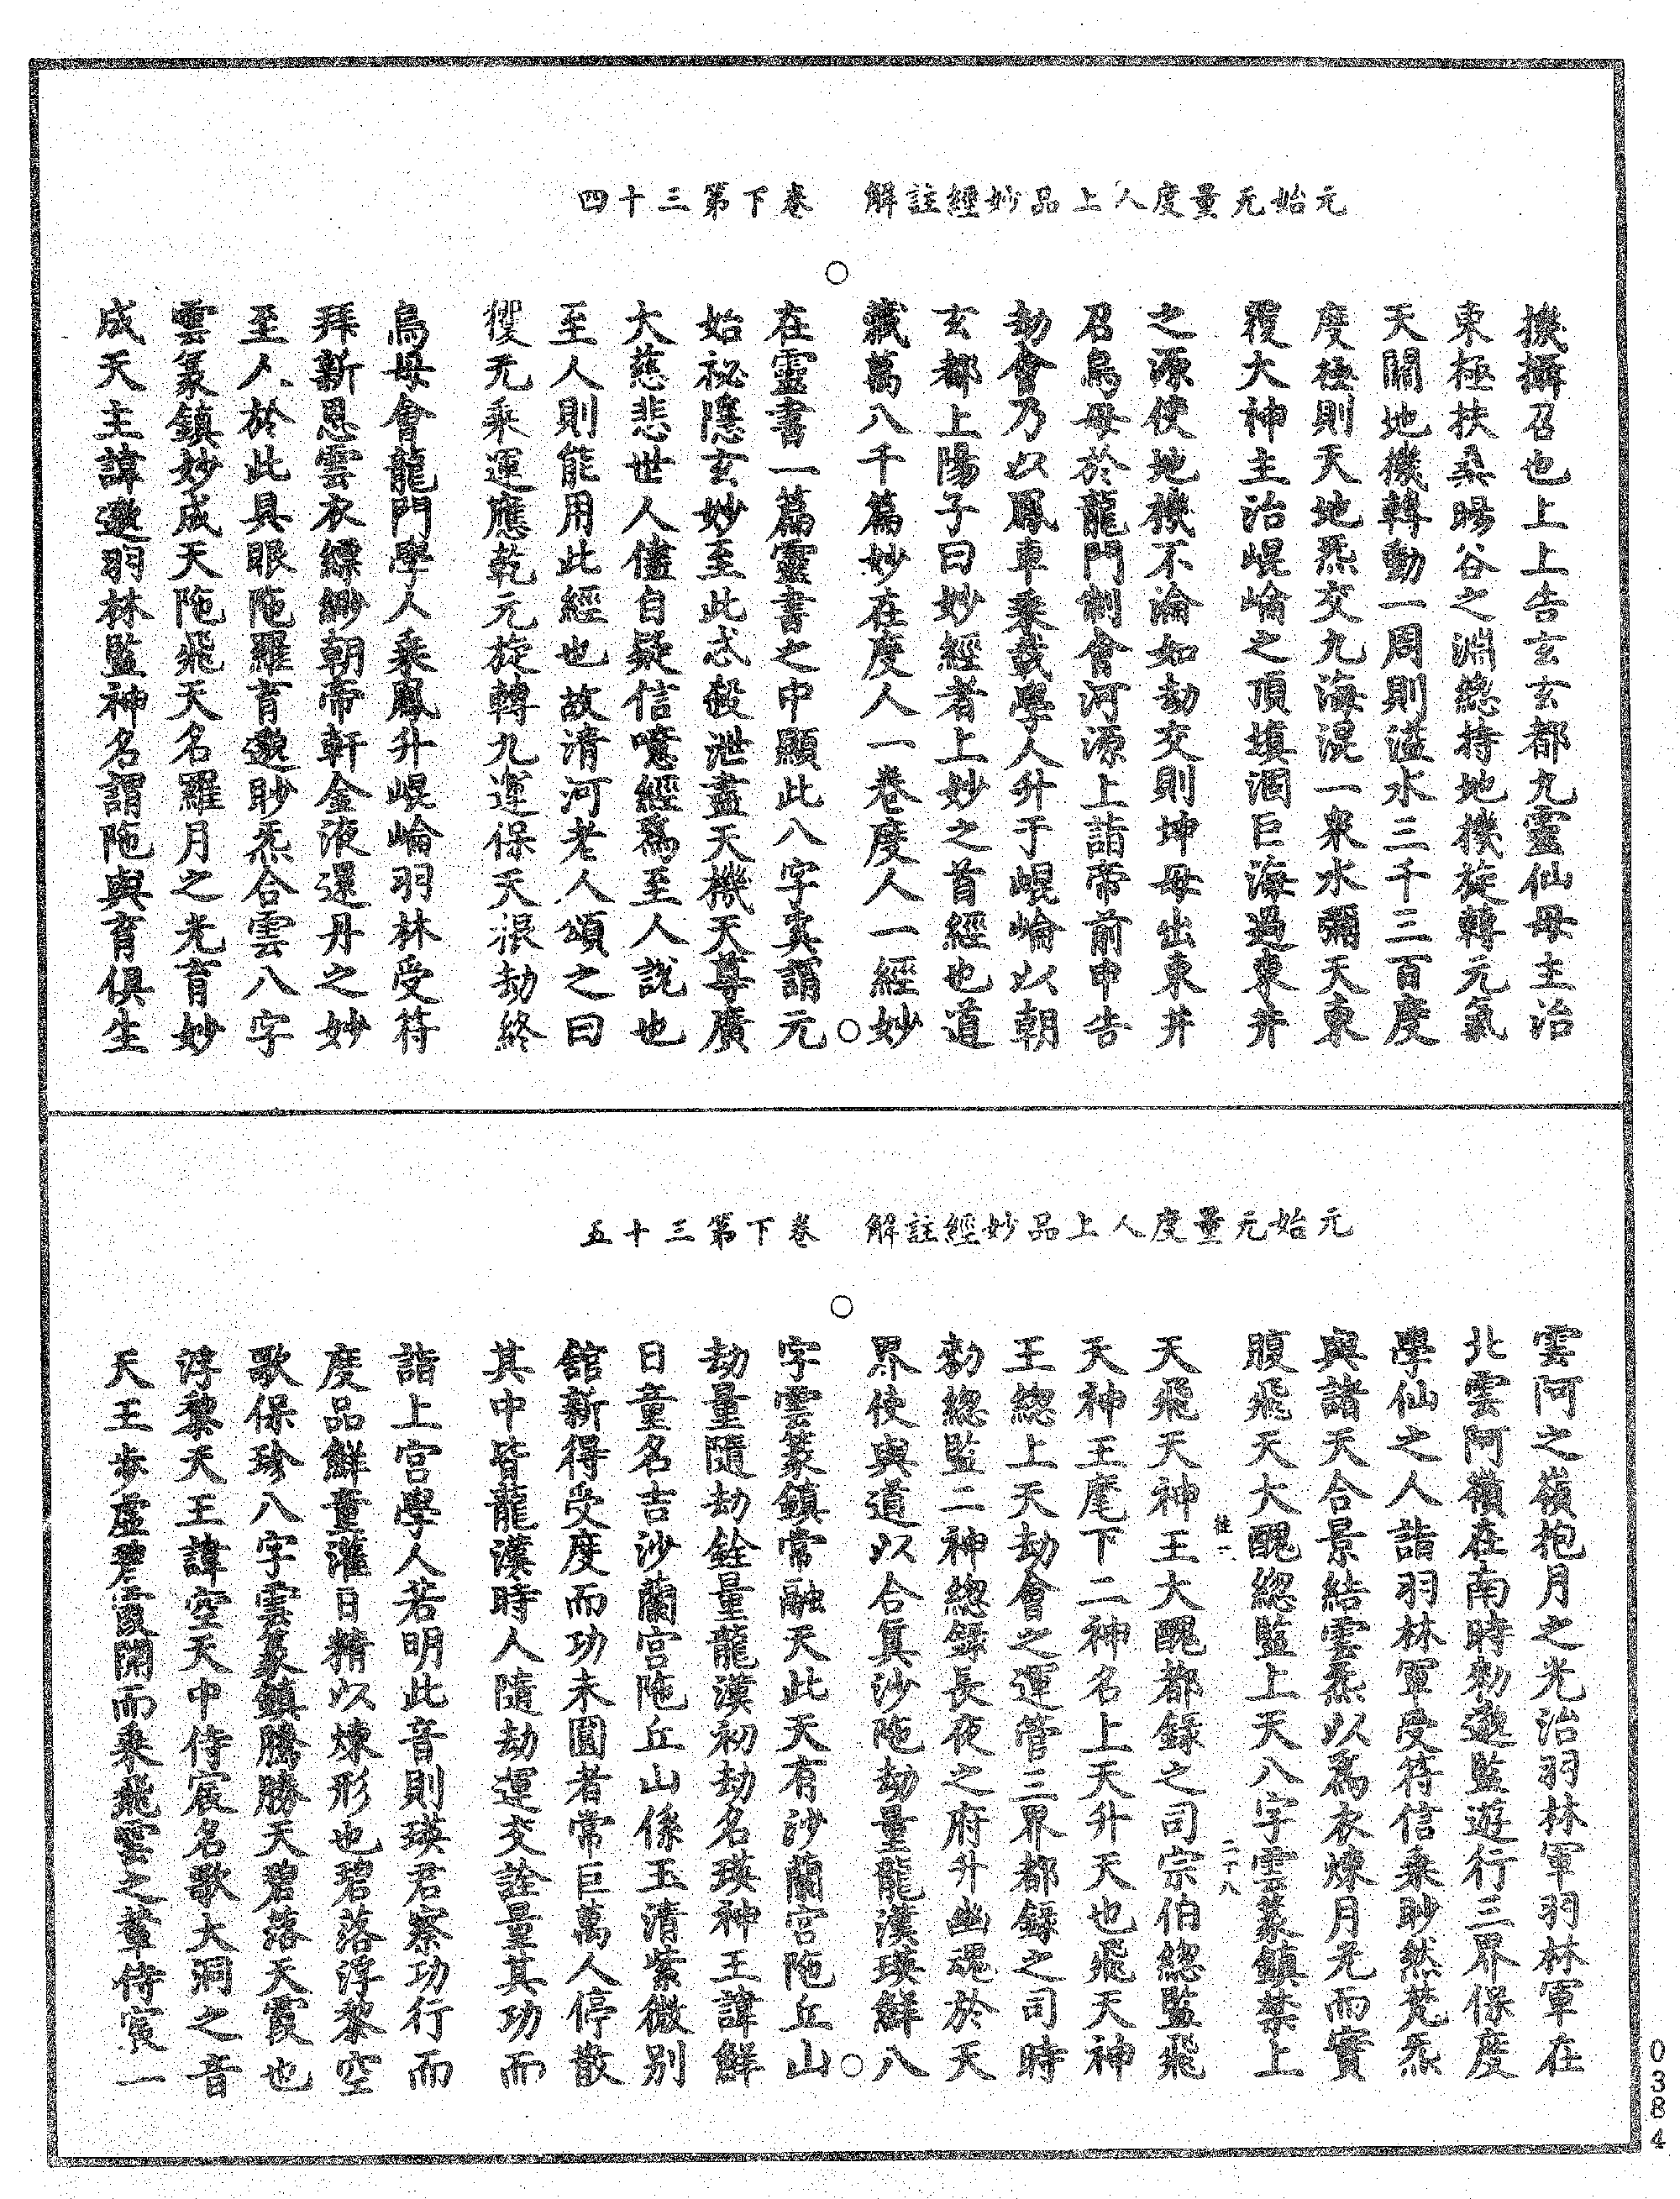 元始无量度人上品妙經註解　卷下第三十四
機攝召也上上告玄玄都九靈仙母主治
東極扶桑暘谷之淵總持地機旋轉元氣
天關地機轉動一周則溢水三千三百度
度極則天地炁交九海混一衆水彌天東
覆大神主治崐崘之頂填涸巨海過東井
之源使地機不淪如劫交則坤母出東井
召鳥母於龍門制會河源上詣帝前申告
劫會乃以鳳車乘載學人升于崐崘以朝
玄都上陽子曰妙經者上妙之首經也道
藏萬八千篇妙在度人一卷度人一經妙
在靈書一篇靈書之中顯此八字真謂元
始祕隱玄妙至此忒殺泄盡天機天尊廣
大慈悲世人儘自疑信噫經爲至人說也
至人則能用此經也故清河老人頌之曰
玃无乘運應乾元旋轉九運保天浪劫終
鳥母會龍門學人乘鳳升崐崘羽林受符
拜新恩雲衣縹緲朝帝軒金液還丹之妙
至人於此具眼陁羅育邈眇炁合雲八字
雲篆鎮妙成天陁飛天名羅月之光育妙
成天主諱邈羽林監神名謂陁與育俱生
元始无量度人上品妙經註解　卷下第三十五
雲阿之嶺抱月之光治羽林軍羽林軍在
北雲阿嶺在南時勑邈監遊行三界保度
學仙之人詣羽林軍受符信乘眇然梵炁
與諸天合景結雲炁以爲衣煉月光而實
腹飛天大醜緫監上天八字雲篆鎮禁上
天飛天神王大醜都録之司宗伯緫監飛
天神王尾下二神名上天升天也飛天神
王緫上天劫會之運管三界都録之司時
勑緫監二神緫録長夜之府升幽魂於天
界使與道以合真沙陁劫量龍漢瑛鮮八
字雲篆鎮常融天此天有沙蘭宮陁丘山
劫量隨劫銓量龍漢初劫名瑛神王諱鮮
日童名吉沙蘭宮陁丘山係玉清紫微别
館新得受度而功未圓者常巨萬人停散
其中皆龍漢時人隨劫運交詮量其功而
詣上宮學人若明此音則瑛君察功行而
度品鮮童灌日精以煉形也碧落浮黎空
歌保珍八字雲篆鎮騰勝天碧落天霞也
浮黎天王諱空天中侍宸名歌大洞之音
天王步虛碧霞開而乘飛雲之輦侍宸一
二十八
0384